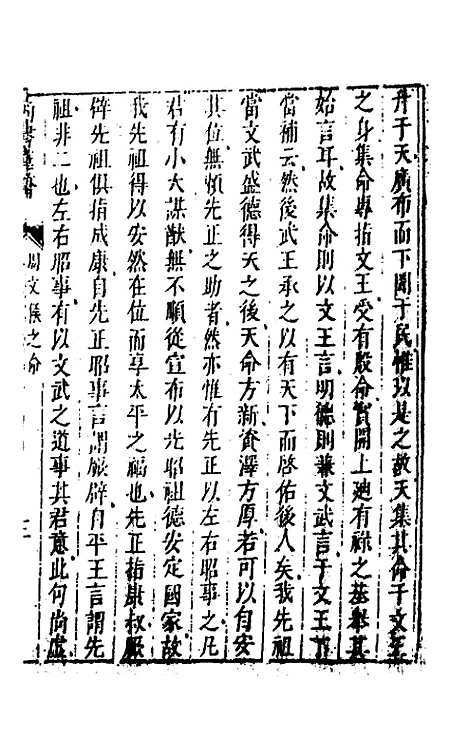 升于天廣布而下聞于民惟以是之故天集其命于文王
之身集命專指文王受有殷命實開上廸有祿之基舉其
始言耳故集命則以文王言明德則兼文武言于文王下
當補云然後武王承之以有天下而啓佑後人矣我先祖
當文武盛德得天之後天命方新資澤方厚若可以自安
其位無煩先正之助者然亦惟有先正以左右昭事之凡
君有小大謀猷無不順從宣布以光昭祖德安定國家故
我先祖得以安然在位而享太平之福也先正指康叔厥
辟先祖俱指成康自先正昭事言謂厥辟自平王言謂先
祖非二也左右昭事有以文武之道事其君意此何尚虛
周文侯之命